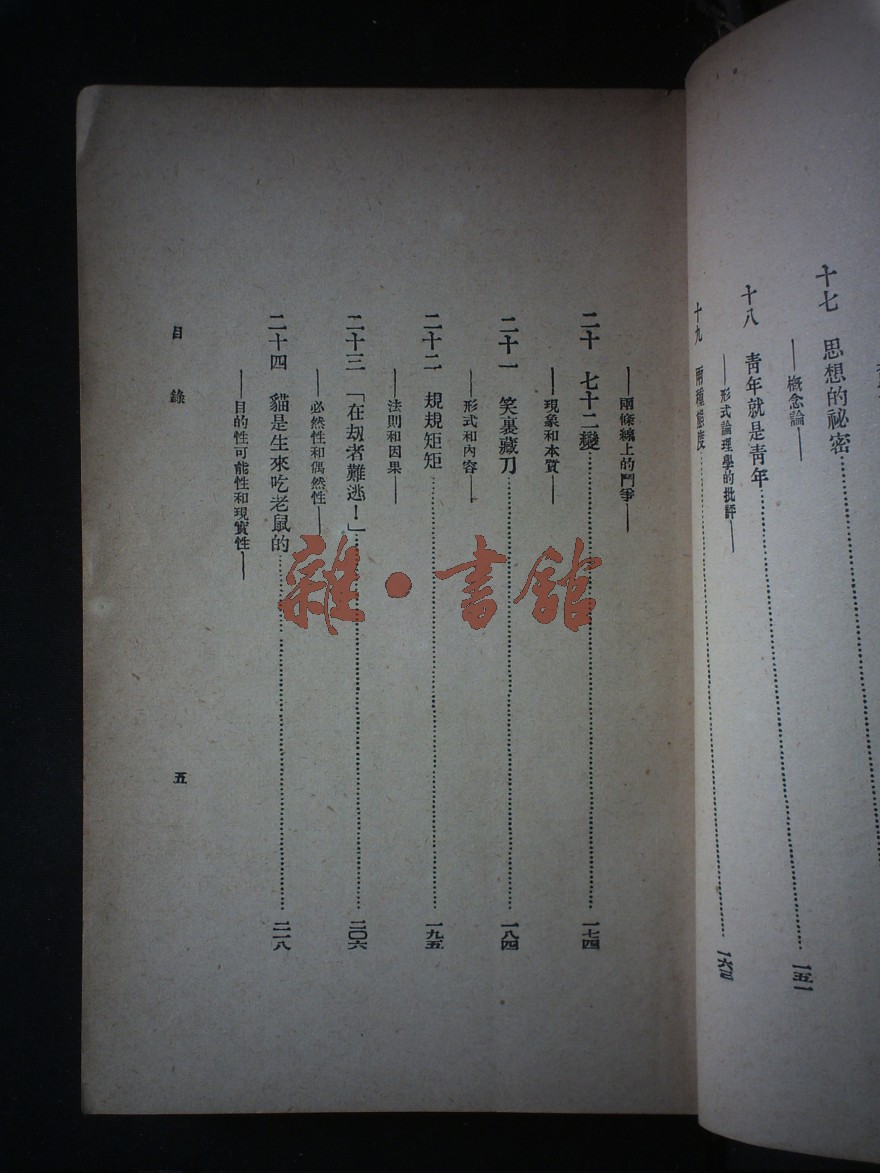 十七 思想的祕密……一五一
——概念論——
十八 青年就是青年……一六三
——形式論理學的批評——
十九 兩種態度……
——兩條綫上的鬥爭——
二十 七十二變……一七四
——現象和本質——
二十一 笑裏藏刀……一八四
——形式和內容——
二十二 規規矩矩……一九五
——法則和因果——
二十三 「在劫者難逃！」……二〇六
——必然性和偶然性——
二十四 貓是生來吃老鼠的……二一八
——目的性可能性和現實性——
目錄 五
雜·書館